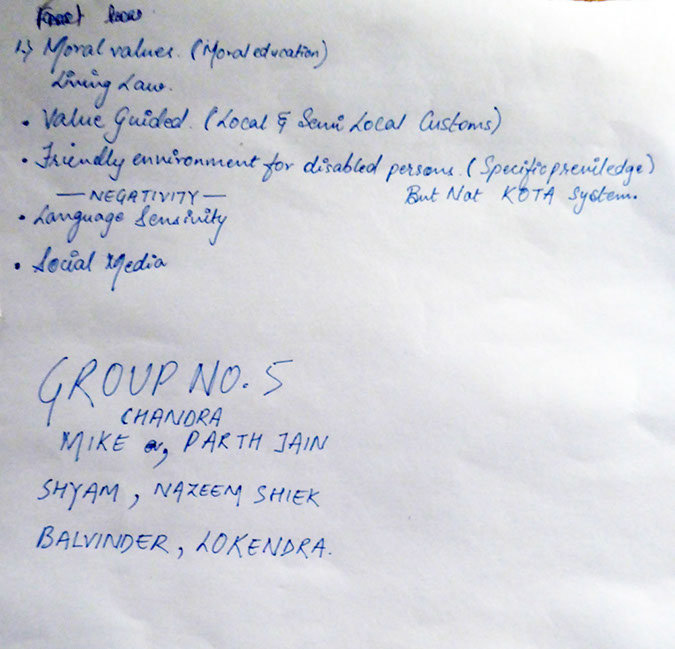 1.) Moral values. (Moral education)
Living Law.
• Value Guided. (Local & Semi Local Customs)
• Friendly environment for disabled persons. (Specific previledge)
But Not KOTA System.
— NEGATIVITY —
• Language Sensivity
• Social Media
GROUP NO. 5
CHANDRA
MIKE , PARTH JAIN
SHYAM , NAZEEM SHIEK
BALVINDER , LOKENDRA.